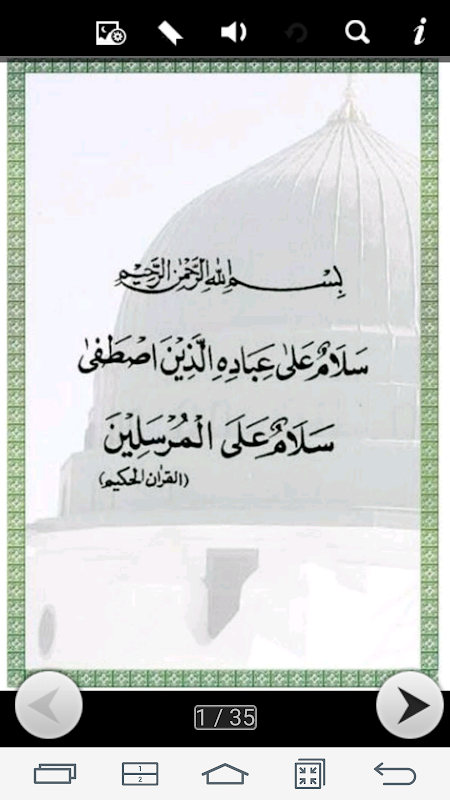 بِسْمِ اللهِ الرَّحْمٰنِ الرَّحِيْمِ
سَلَامٌ عَلٰى عِبَادِهِ الَّذِيْنَ اصْطَفٰى
سَلَامٌ عَلَى الْمُرْسَلِيْنَ
(القرآن الحكيم)
1 / 35
1
2